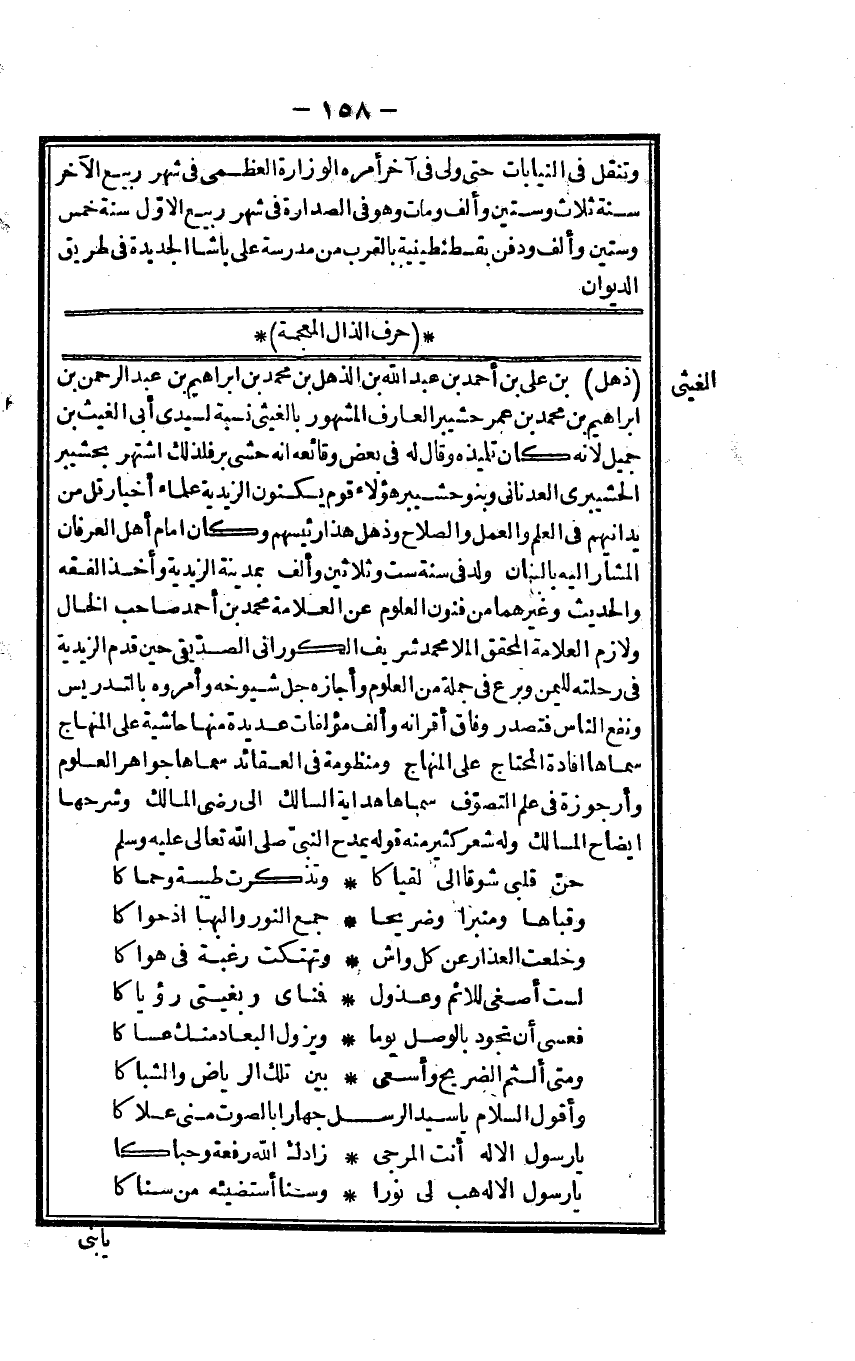 — ١٥٨ —
وتنقل فى النيابات حتى ولى فى آخر أمره الوزارة العظمى فى شهر ربيع الآخر
سنة ثلاث وستين وألف ومات وهو فى الصدارة فى شهر ربيع الاوّل سنة خمس
وستين وألف ودفن بقسطنطينية بالقرب من مدرسة على باشا الجديدة فى طريق
الديوان
*(حرف الذال المعجمة)*
الغيثى
(ذهل) بن على بن أحمد بن عبد الله بن الذهل بن محمد بن ابراهيم بن عبد الرحمن بن
ابراهيم بن محمد بن عمر حشيبر العارف المشهور بالغيثى نسبة لسيدى أبى الغيث بن
جميل لانه كان تليذه وقال له فى بعض وقائعه انه حشى بر فلذلك اشتهر بحشيبر
الحشيبرى العدنانى وبنو حشيبر هؤلاء قوم يسكنون الزيدية علماء أخيار قل من
يدانيهم فى العلم والعمل والصلاح وذهل هذا رئيسهم وكان امام أهل العرفان
المشار اليه بالبنان ولد فى سنة ست وثلاثين وألف بمدينة الزيدية وأخذ الفقه
والحديث وغيرهما من فنون العلوم عن العلامة محمد بن أحمد صاحب الخال
ولازم العلامة المحقق الملا محمد شريف الكورانى الصدّيقى حين قدم الزيدية
فى رحلته لليمن وبرع فى جملة من العلوم وأجازه جل شيوخه وأمروه بالتدريس
ونفع الناس فتصدر وفاق أقرانه وألف مؤلفات عديدة منها حاشية على المنهاج
سماها افادة المحتاج على المنهاج ومنظومة فى العقائد سماها جواهر العلوم
وأرجوزة فى علم التصوّف سماها هداية السالك الى رضى المالك وشرحها
ايضاح المسالك وله شعر كثير منه قوله يمدح النبىّ صلى الله تعالى عليه وسلم
حنّ قلبى شوقا الى لقياكا * وتذكرت طيبة وحماكا
وقباها ومنبرا وضريحا * جمع النور والبها اذ حواكا
وخلعت العذار عن كل واش * وتهتكت رغبة فى هواكا
لست أصغى للائم وعذول * فمناى وبغيتى رؤياكا
فعسى أن تجود بالوصل يوما * ويزول البعاد منك عساكا
ومتى ألثم الضريح وأسعى * بين تلك الرياض والشباكا
وأقول السلام ياسيد الرسل جهارا بالصوت منى علاكا
يارسول الاله أنت المرجى * زادك الله رفعة وحباكا
يارسول الاله هب لى نورا * وسنا أستضيئه من سناكا
يابنى